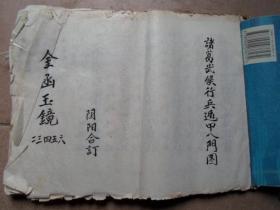 諸葛武侯行兵遁甲八門图
阴阳合訂
金函玉鏡
二三四五六